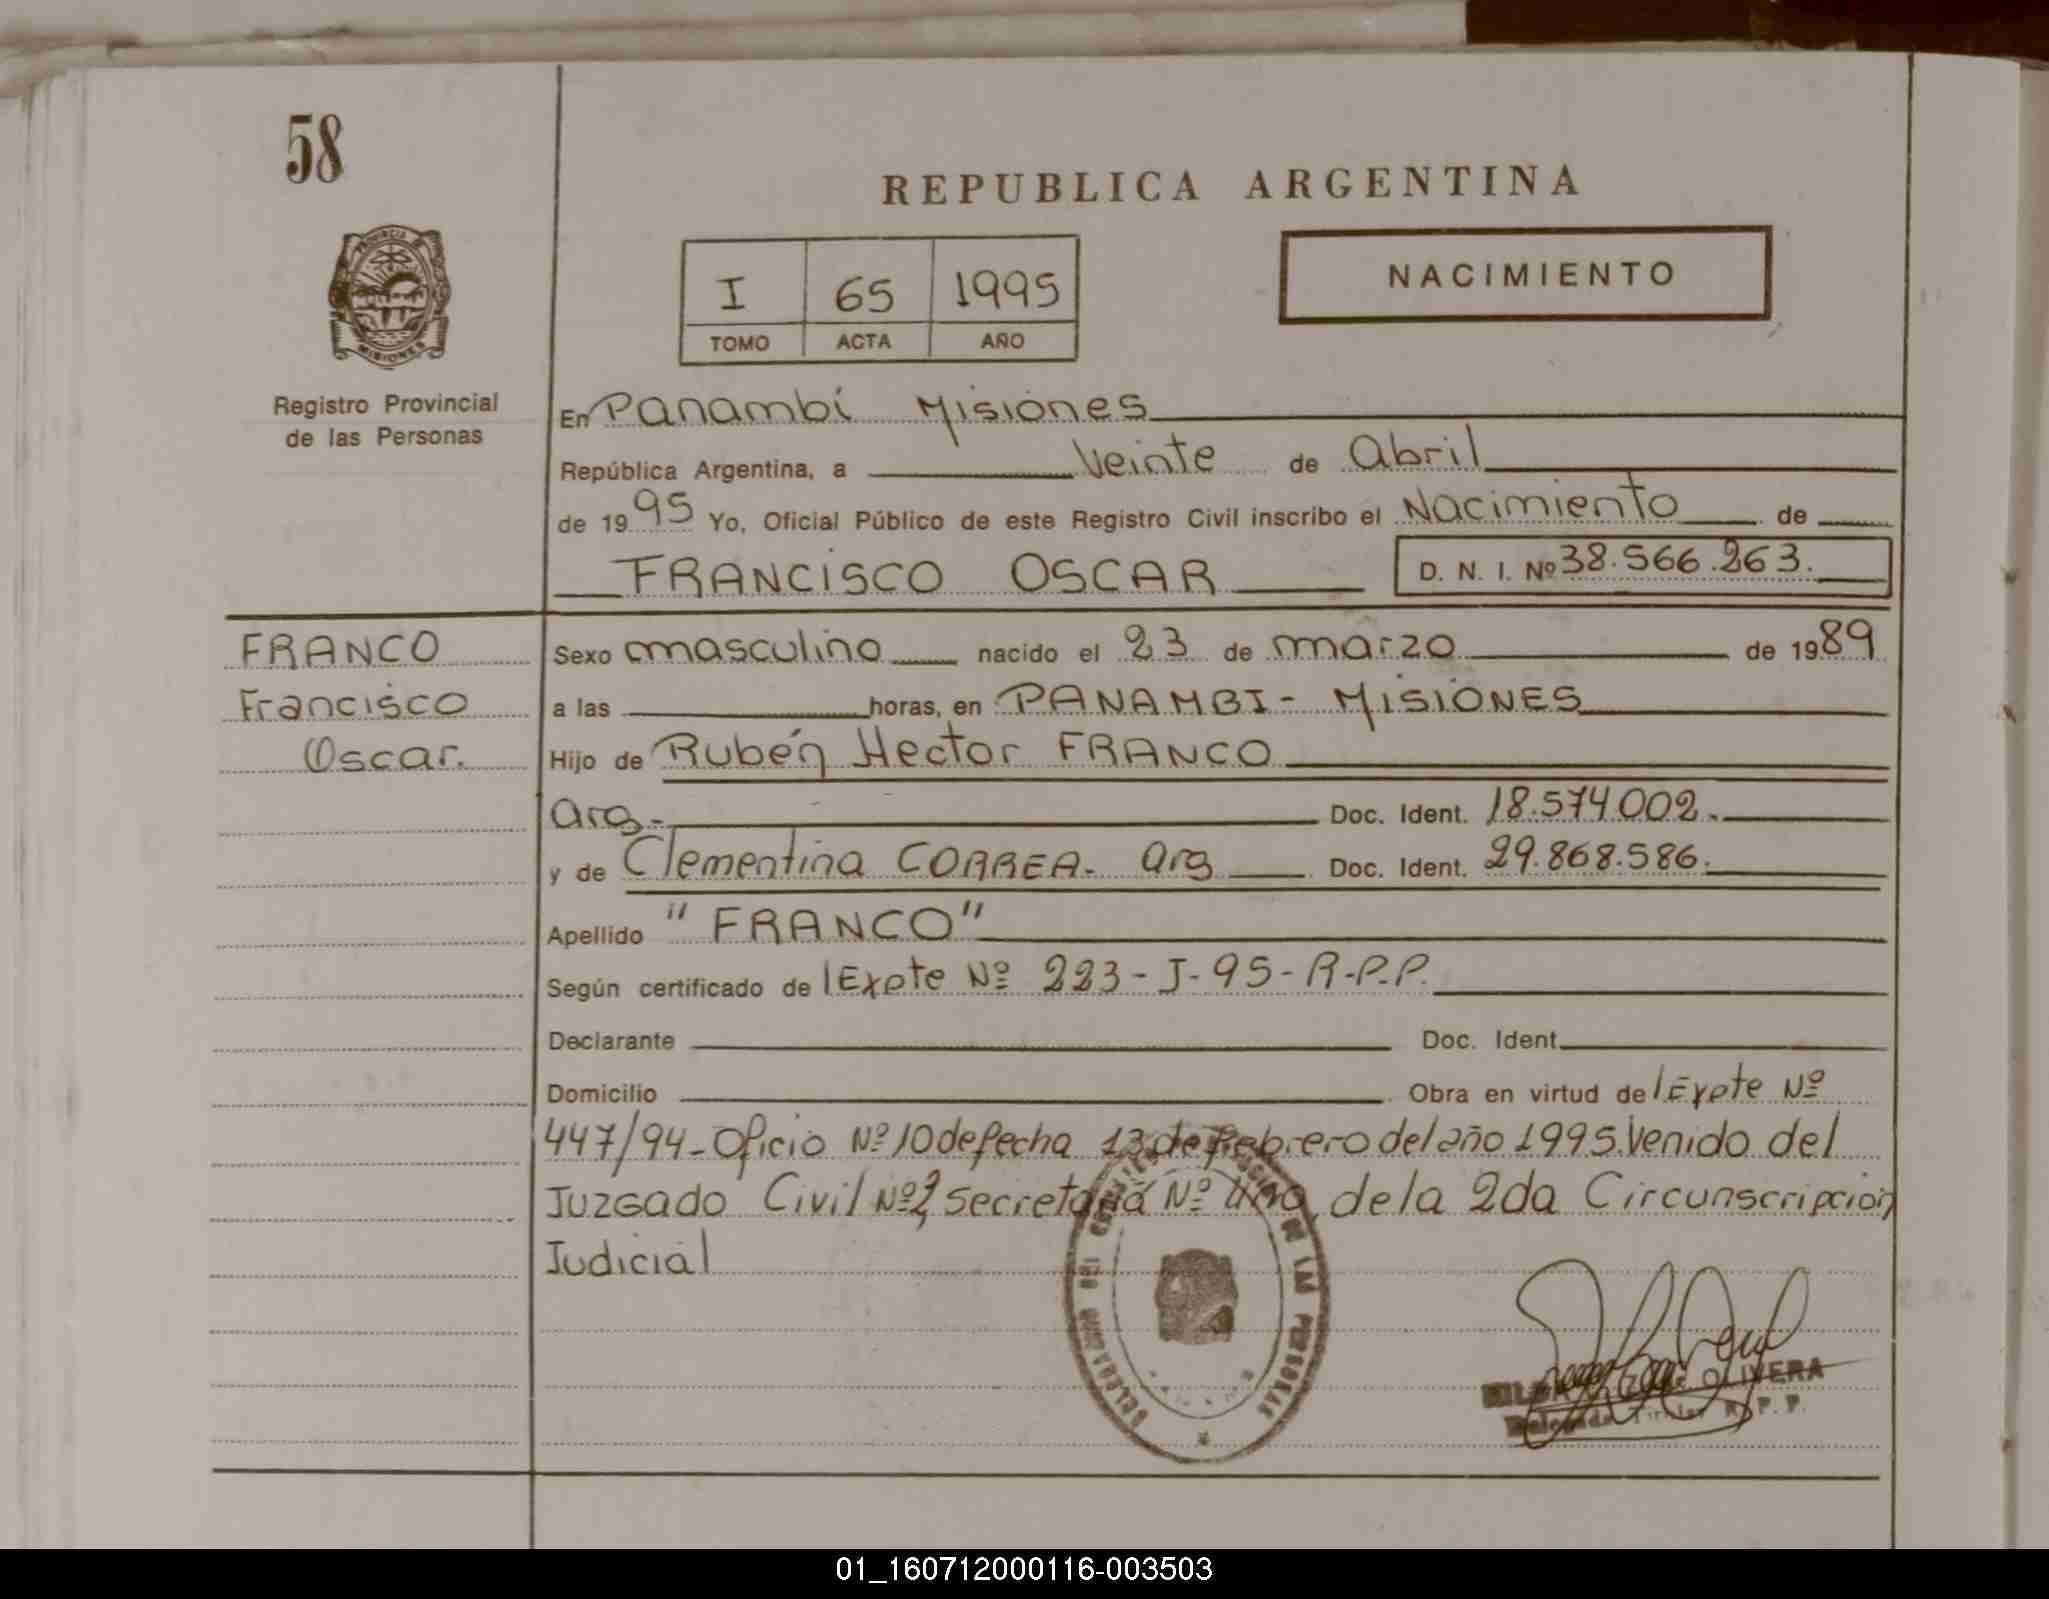 58
REPUBLICA ARGENTINA
PROVINCIA DE
MISIONES
NACIMIENTO
I 65 1995
TOMO ACTA AÑO
Registro Provincial
de las Personas
En Panambí Misiones
República Argentina, a Veinte de Abril
de 1995 Yo, Oficial Público de este Registro Civil inscribo el Nacimiento de
FRANCISCO OSCAR D. N. I. Nº 38.566.263.
FRANCO
Francisco
Oscar.
Sexo masculino nacido el 23 de marzo de 1989
a las horas, en PANAMBI - MISIONES
Hijo de Rubén Hector FRANCO
arg - Doc. Ident. 18.574.002.
y de Clementina CORREA. arg Doc. Ident. 29.868.586.
Apellido "FRANCO"
Según certificado de Expte Nº 223-J-95-R-P.P.
Declarante Doc. Ident.
Domicilio Obra en virtud de Expte Nº
447/94-Oficio Nº 10 de fecha 13 de Febrero del año 1995. Venido del
Juzgado Civil Nº 2, Secretaría Nº Uno, de la 2da Circunscripción
Judicial
DE LAS PERSONAS
OLIVERA
Delegada Titular R. P. P.
01_160712000116-003503